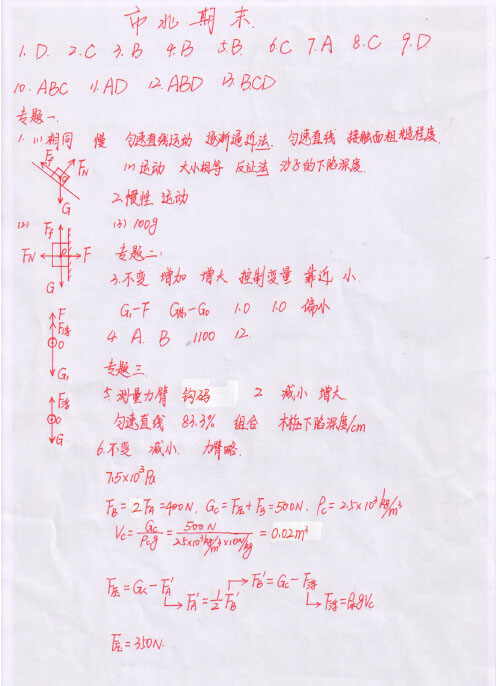 市北期末.
1. D. 2. C 3. B 4. B 5. B 6. C 7. A 8. C 9. D
10. ABC 11. AD 12. ABD 13. BCD
专题一.
1. (1) 相同 慢 匀速直线运动 逐渐逼近法. 匀速直线 接触面粗糙程度.
Ff FN G
(2) 运动 大小相等 反证法 沙子的下陷深度.
2. 惯性 运动
(2) Ff FN F G
(3) 100g
专题二.
3. 不变 增加 增大 控制变量 靠近 小.
G1-F G排-G0 1.0 1.0 偏小
F F浮 O G1
4. A. B 1100 12.
专题三.
5. 测量力臂 钩码 2 减小 增大
F浮 O G
匀速直线 83.3% 组合 木桩下陷深度/cm
6. 不变 减小. 力臂略.
7.5×10³Pa
FB=2FA=400N. GC=F压+FB=500N. ρC=2.5×10³kg/m³
VC=GC/ρCg=500N/2.5×10³kg/m³×10N/kg=0.02m³
F压=GK-FA′ FB′=GC-F浮
FA′=½FB′ F浮=ρ水gVC
F压=350N.